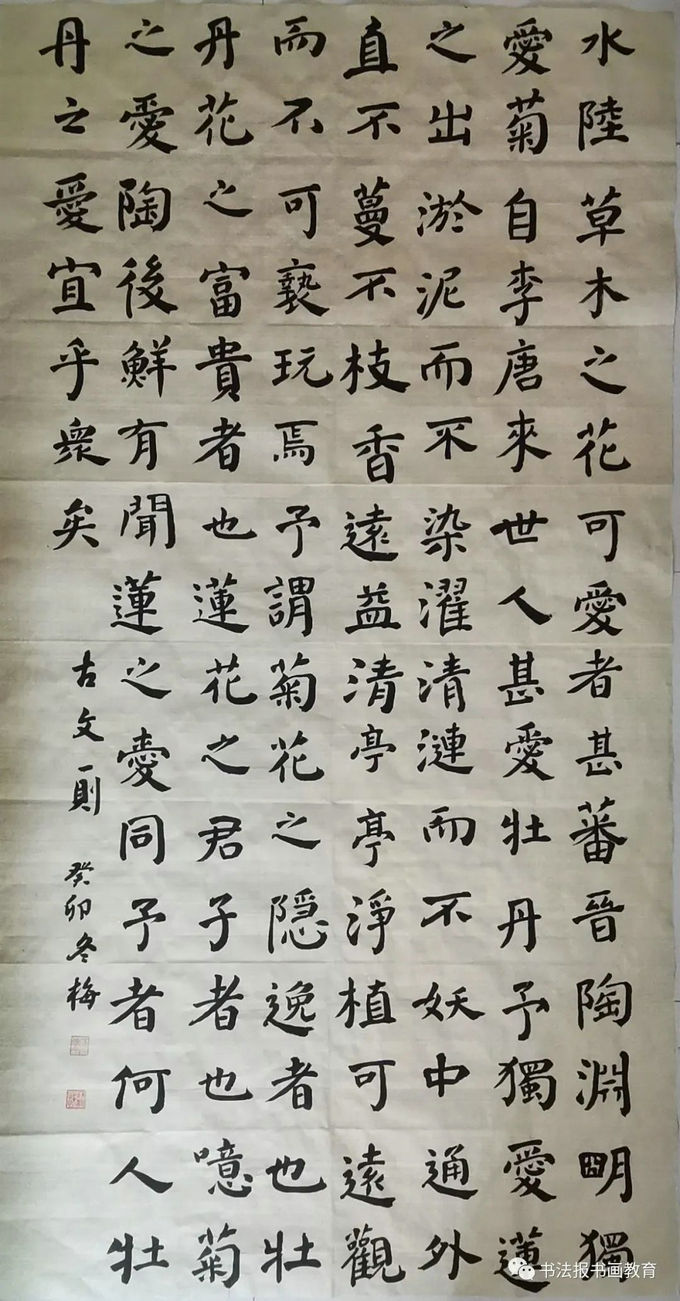 水陸草木之花可愛者甚蕃晉陶淵明獨
愛菊自李唐來世人甚愛牡丹予獨愛蓮
之出淤泥而不染濯清漣而不妖中通外
直不蔓不枝香遠益清亭亭淨植可遠觀
而不可褻玩焉予謂菊花之隱逸者也牡
丹花之富貴者也蓮花之君子者也噫菊
之愛陶後鮮有聞蓮之愛同予者何人牡
丹之愛宜乎衆矣
古文一則 癸卯冬梅
书法报书画教育